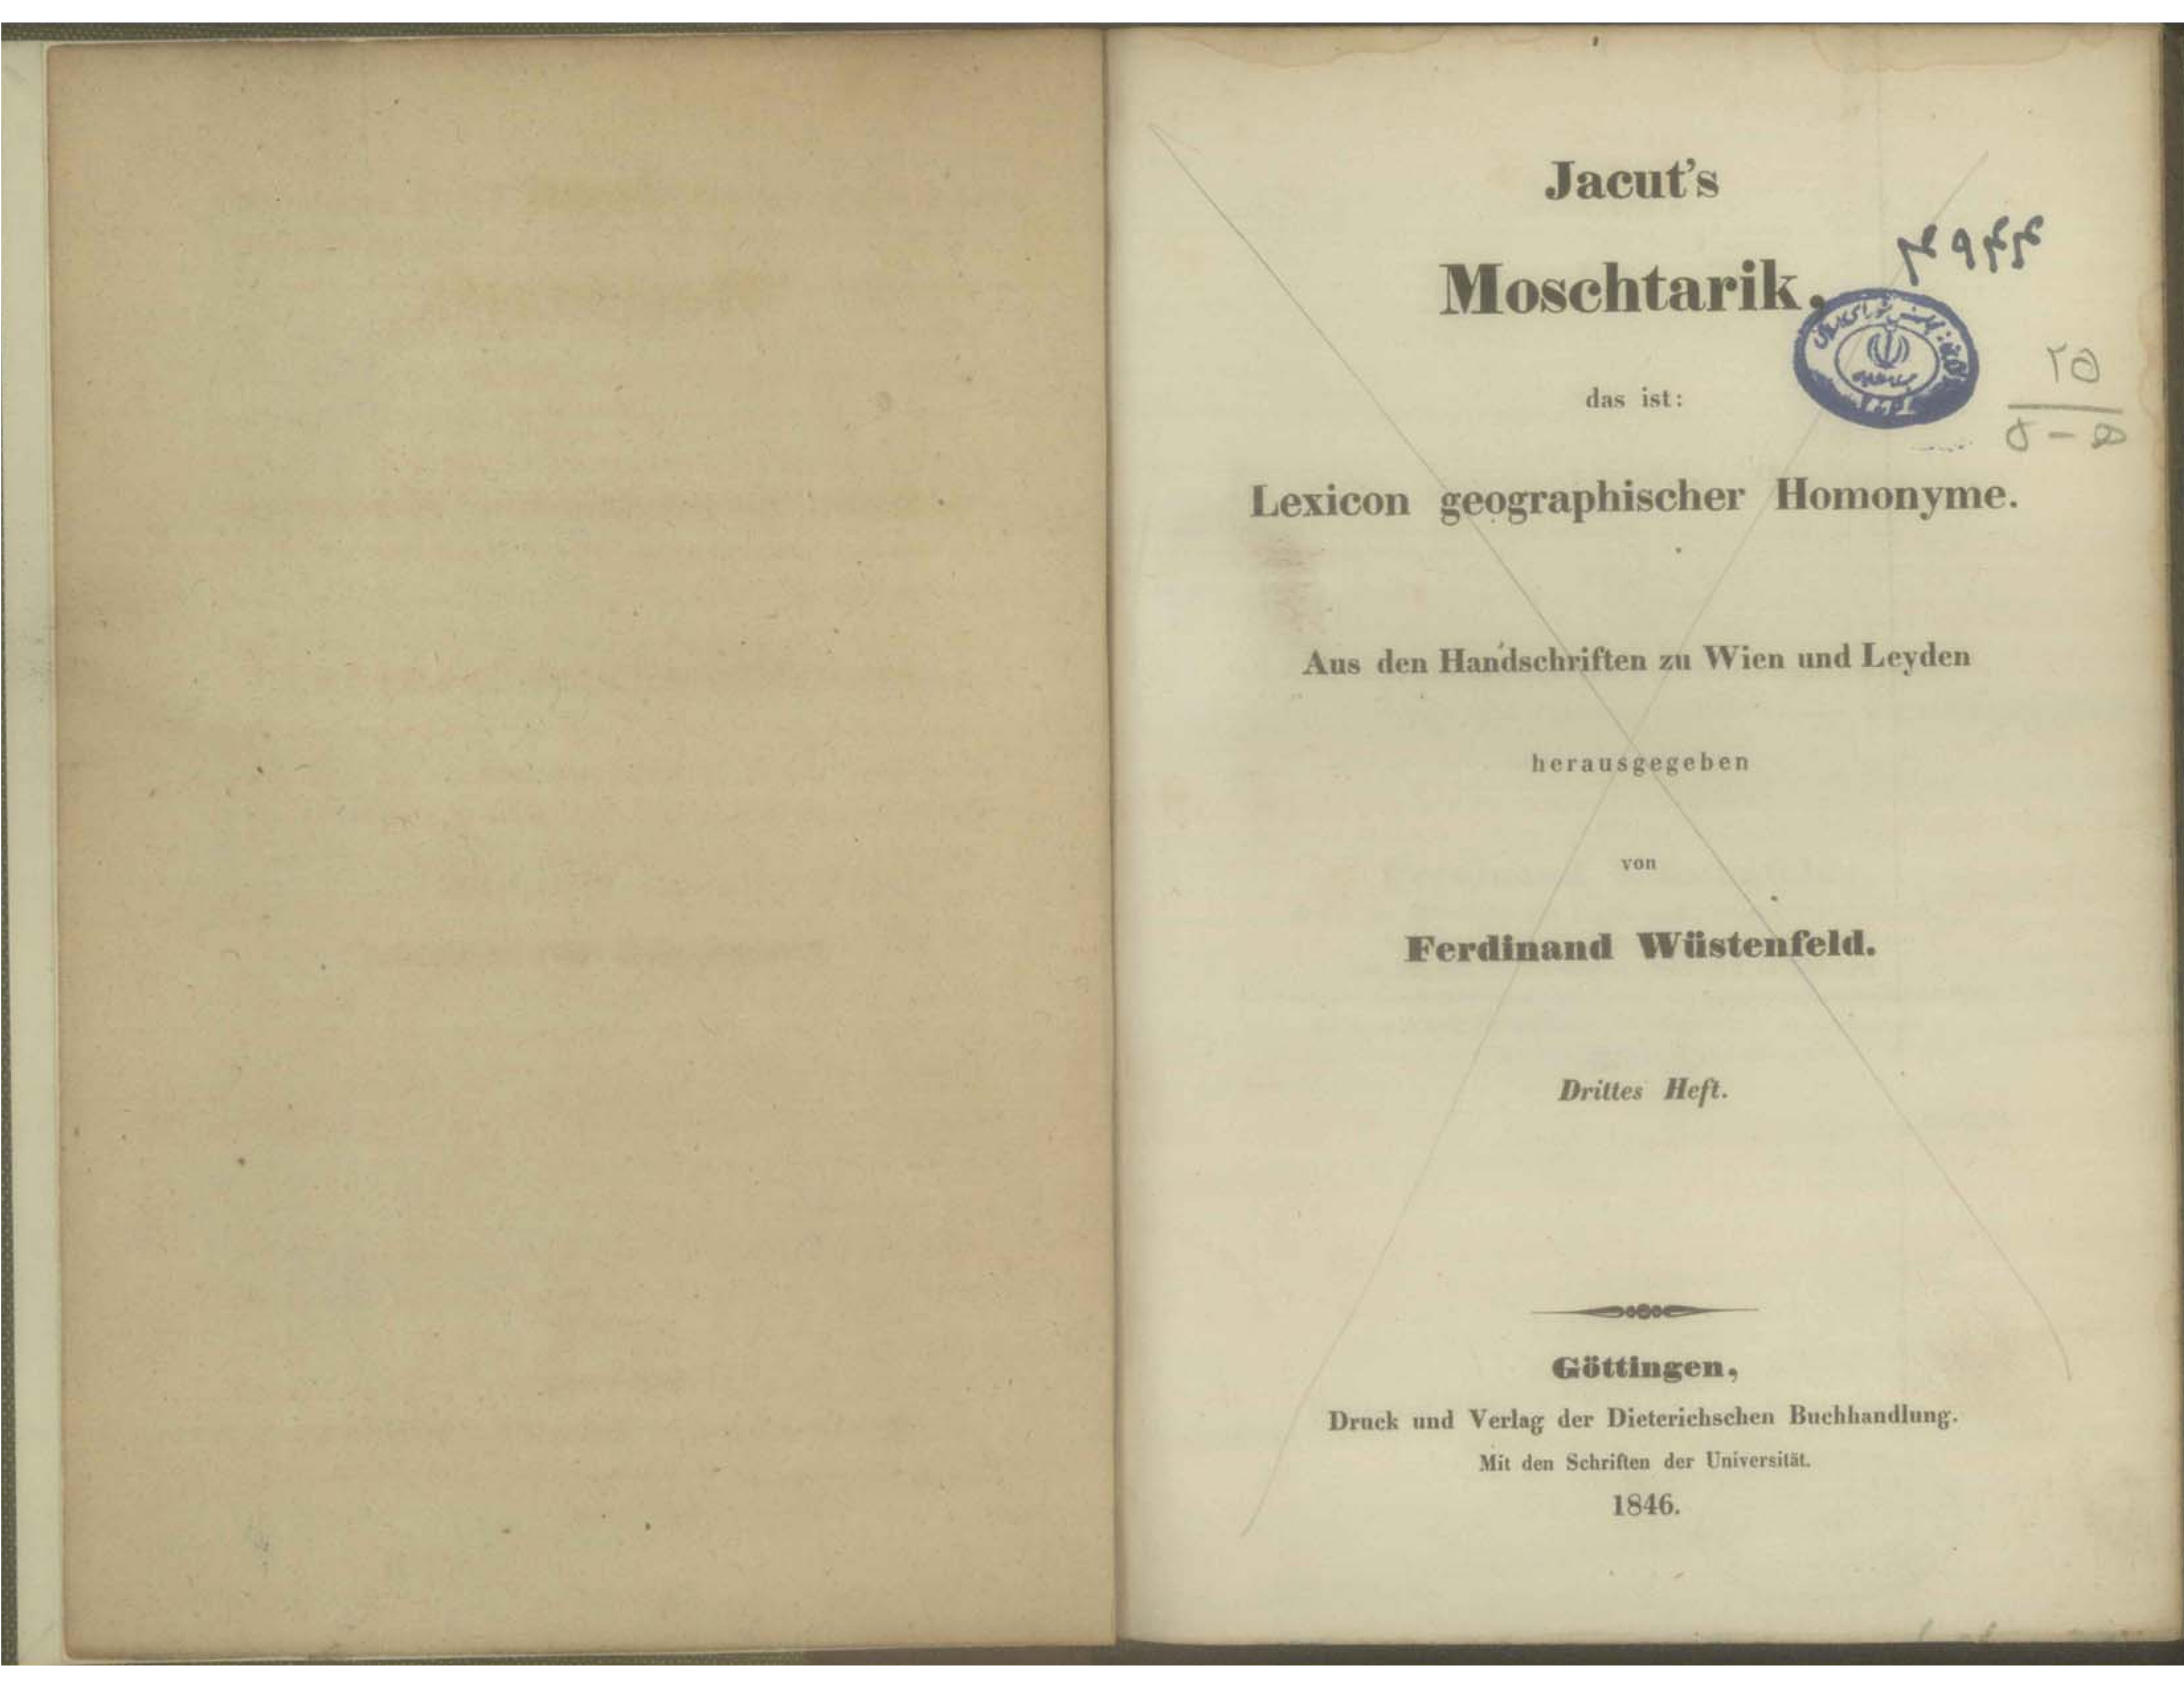 Jacut's
Moschtarik,
das ist:
Lexicon geographischer Homonyme.
Aus den Handschriften zu Wien und Leyden
herausgegeben
von
Ferdinand Wüstenfeld.
Drittes Heft.
Göttingen,
Druck und Verlag der Dieterichschen Buchhandlung.
Mit den Schriften der Universität.
1846.
۲۵